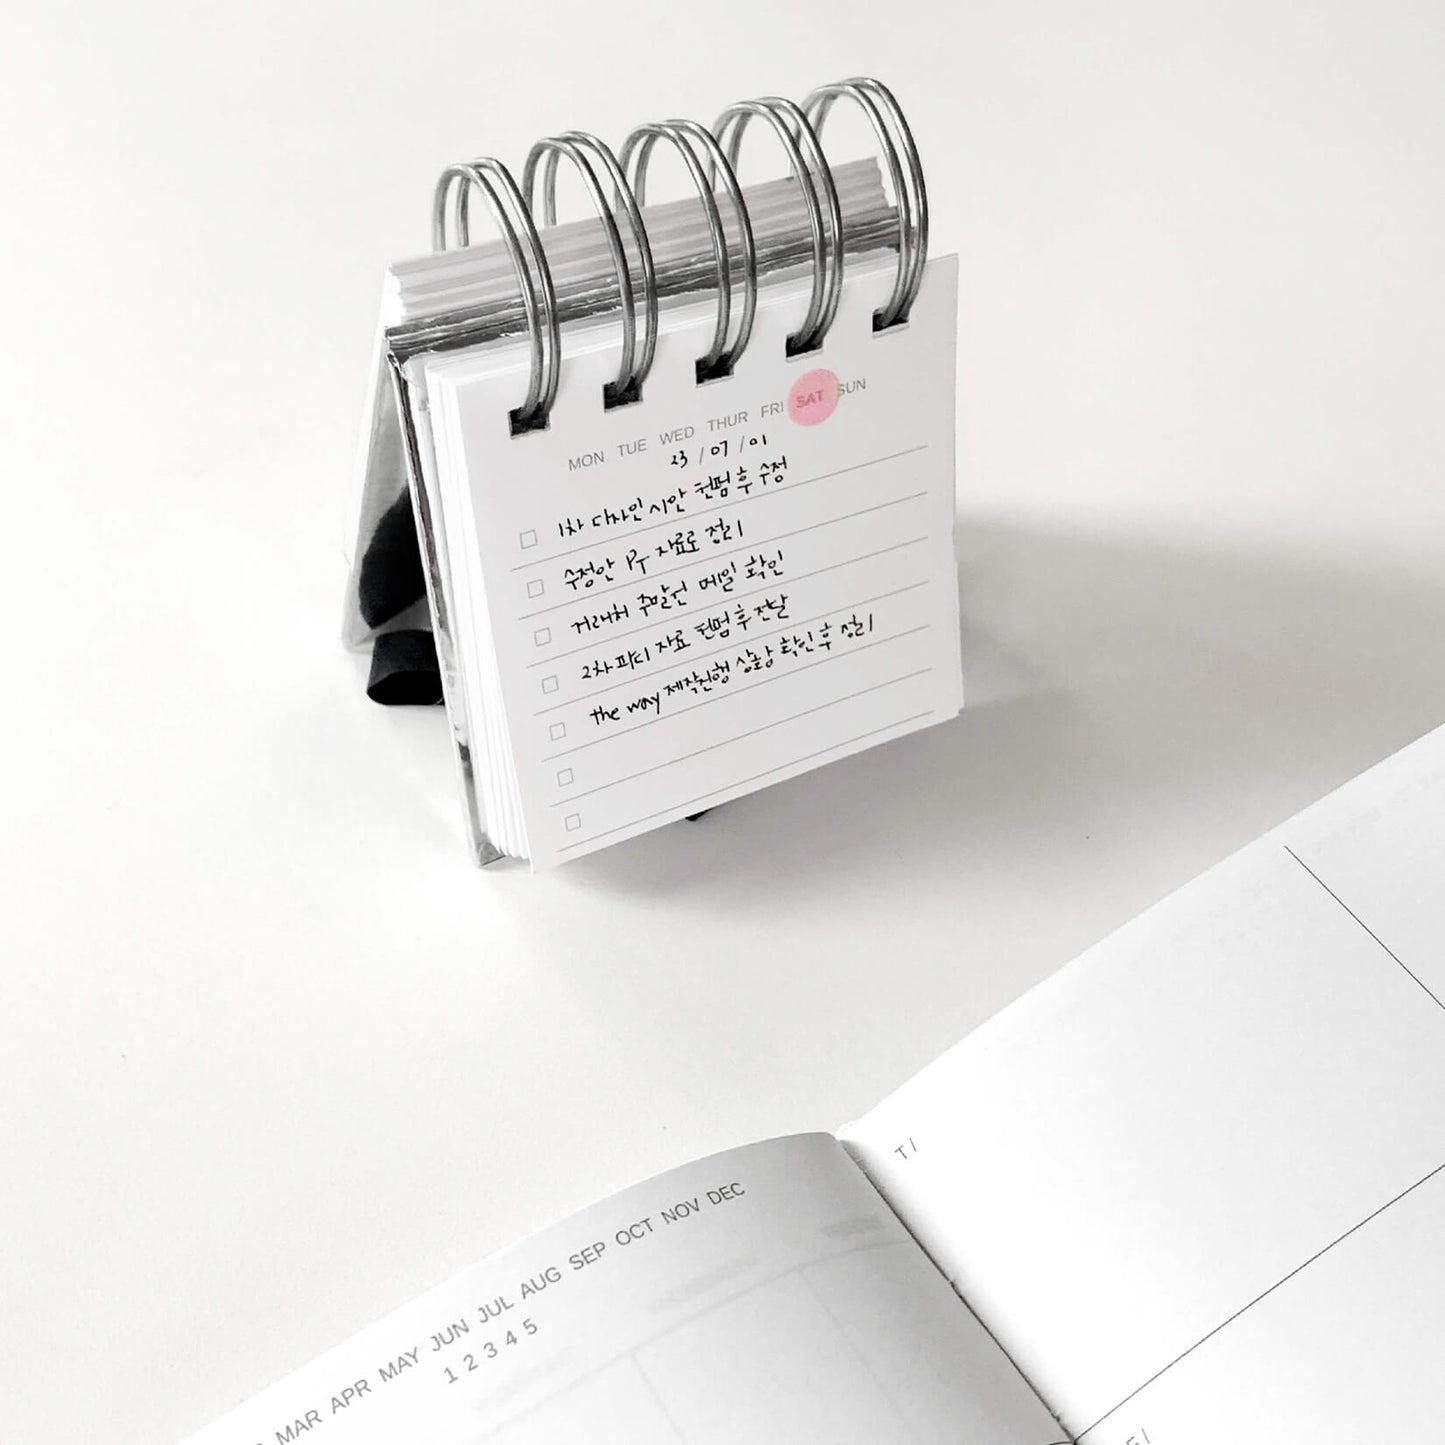 MON TUE WED THUR FRI SAT SUN
23 / 07 / 01
1차 디자인 시안 컨펌 후 수정
수정안 PT 자료로 정리
거래처 주말전 메일 확인
2차 파디 자료 컨펌 후 전달
the way 제작진행 상황 확인 후 정리
MAR APR MAY JUN JUL AUG SEP OCT NOV DEC
1 2 3 4 5
T /